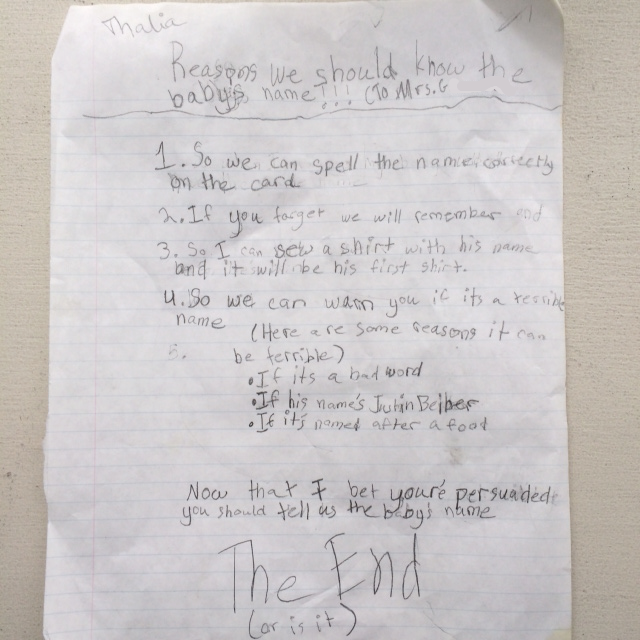 Thalia
Reasons we should know the
baby's name!!! (To Mrs.G
1. So we can spell the name correctly
on the card
2. If you forget we will remember
3. So I can sew a shirt with his name
and it will be his first shirt.
4. So we can warn you if its a terrible
name
(Here are some reasons it can
5. be terrible)
• If its a bad word
• If his name's Justin Beiber
• If it's named after a food
Now that I bet you're persuaded
you should tell us the baby's name
The End
(or is it)